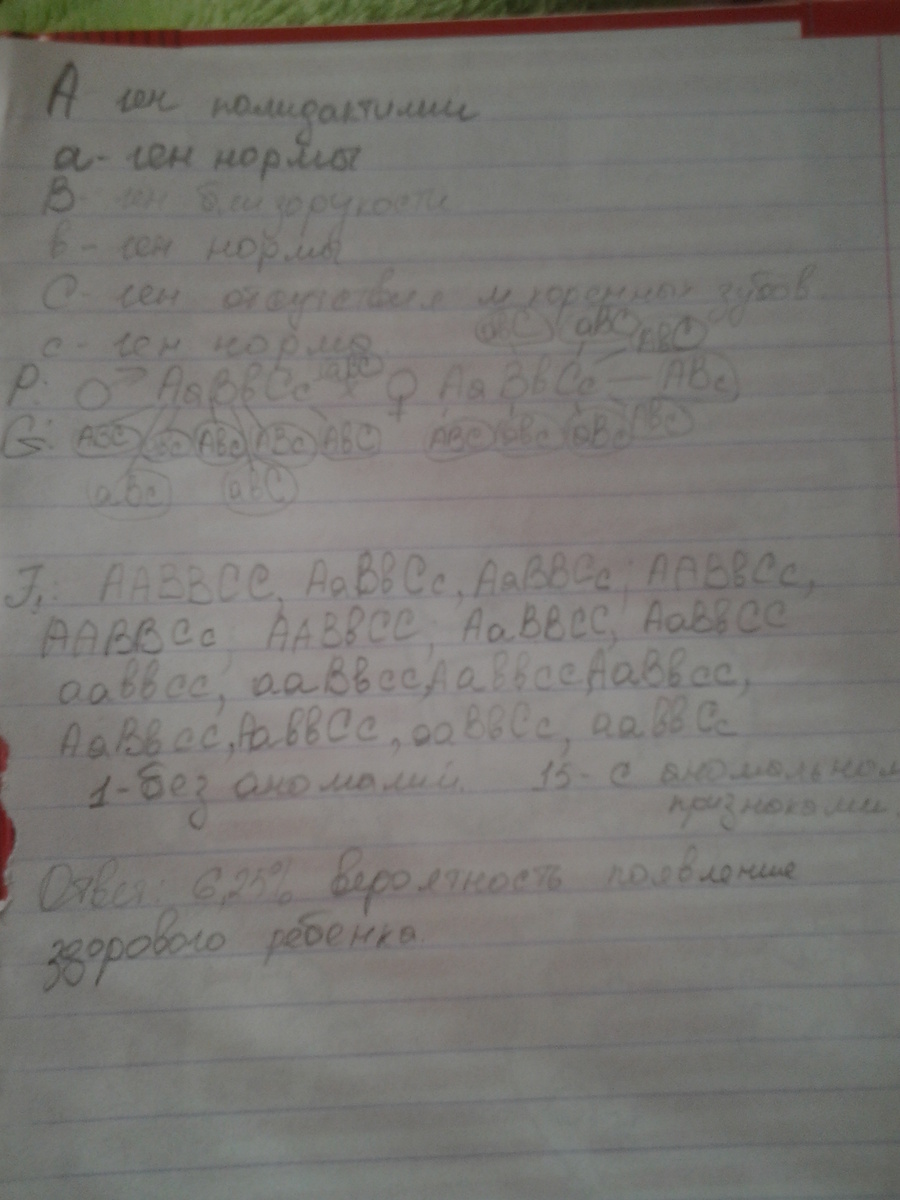 А ген полидактилии
а - ген нормы
В - ген близорукости
в - ген нормы
С - ген отсутствия м коренных зубов
с - ген норма
аВС аВС АвС
P: ♂ АаВвСс × ♀ АаВвСс — АВс
G: АВС АВс АВс АвС АВС аВс АвС
аВс авС
F₁: ААВВСС, АаВвСс, АаВВСс; ААВвСс,
ААВВСс; ААВвСС; АаВВСС, АаВвСС
ааввсс, ааВвсс, Ааввсс, АаВвсс,
АаВвсс, АаввСс, ааВвСс, ааввСс
1 - без аномалий. 15 - с аномальном
признаками.
Ответ: 6,25% вероятность появление
здорового ребенка.